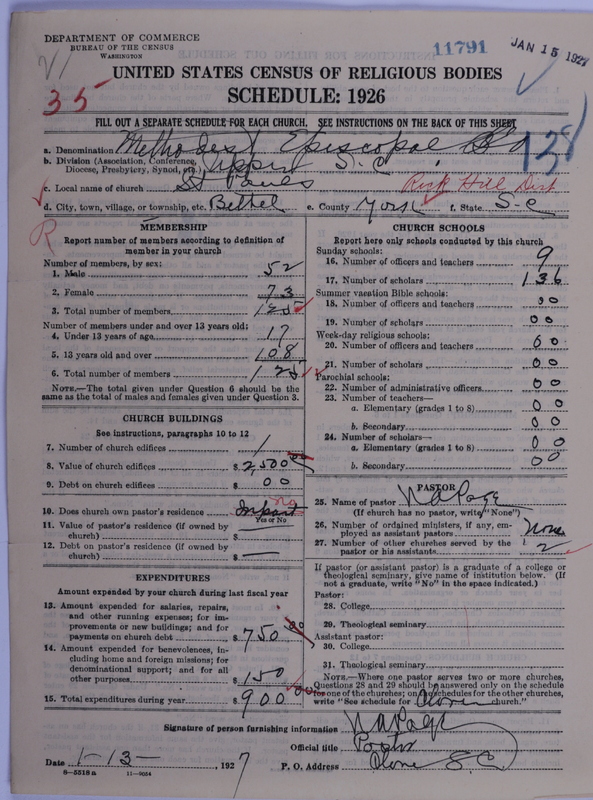 DEPARTMENT OF COMMERCE
BUREAU OF THE CENSUS
WASHINGTON
11791
JAN 15 1927
35
UNITED STATES CENSUS OF RELIGIOUS BODIES
SCHEDULE: 1926
FILL OUT A SEPARATE SCHEDULE FOR EACH CHURCH. SEE INSTRUCTIONS ON THE BACK OF THIS SHEET
138
a. Denomination Methodest Episcopal
b. Division (Association, Conference, Diocese, Presbytery, Synod, etc.) Upper S. C
c. Local name of church St Pauls Rock Hill Dist
d. City, town, village, or township, etc. Bethel e. County York f. State S-C
R
MEMBERSHIP
Report number of members according to definition of
member in your church
Number of members, by sex:
1. Male 52
2. Female 73
3. Total number of members 125
Number of members under and over 13 years old:
4. Under 13 years of age 17
5. 13 years old and over 108
6. Total number of members 125
NOTE.—The total given under Question 6 should be the
same as the total of males and females given under Question 3.
CHURCH BUILDINGS
See instructions, paragraphs 10 to 12
7. Number of church edifices 1
8. Value of church edifices $ 2,500 00
9. Debt on church edifices $ 00
10. Does church own pastor's residence In part no
Yes or No
11. Value of pastor's residence (if owned by
church) $
12. Debt on pastor's residence (if owned by
church) $
EXPENDITURES
Amount expended by your church during last fiscal year
13. Amount expended for salaries, repairs,
and other running expenses; for im-
provements or new buildings; and for
payments on church debt $ 750 00
14. Amount expended for benevolences, in-
cluding home and foreign missions; for
denominational support; and for all
other purposes $ 150
15. Total expenditures during year $ 900 00
CHURCH SCHOOLS
Report here only schools conducted by this church
Sunday schools:
16. Number of officers and teachers 9
17. Number of scholars 136
Summer vacation Bible schools:
18. Number of officers and teachers 00
19. Number of scholars 00
Week-day religious schools:
20. Number of officers and teachers 00
21. Number of scholars 00
Parochial schools:
22. Number of administrative officers 00
23. Number of teachers—
a. Elementary (grades 1 to 8) 00
b. Secondary 00
24. Number of scholars—
a. Elementary (grades 1 to 8) 00
b. Secondary 00
PASTOR
25. Name of pastor N A Page
(If church has no pastor, write "None")
26. Number of ordained ministers, if any, em-
ployed as assistant pastors None
27. Number of other churches served by the
pastor or his assistants 2
If pastor (or assistant pastor) is a graduate of a college or
theological seminary, give name of institution below. (If
not a graduate, write "No" in the space indicated.)
Pastor:
28. College
29. Theological seminary
Assistant pastor:
30. College
31. Theological seminary
NOTE.—Where one pastor serves two or more churches,
Questions 28 and 29 should be answered only on the schedule
for one of the churches; on the schedules for the other churches,
write "See schedule for Clover church."
Signature of person furnishing information N A Page
Official title Pastor
Date 1-13- 1927 P. O. Address Clover S. C
8—5518 a 11—9054